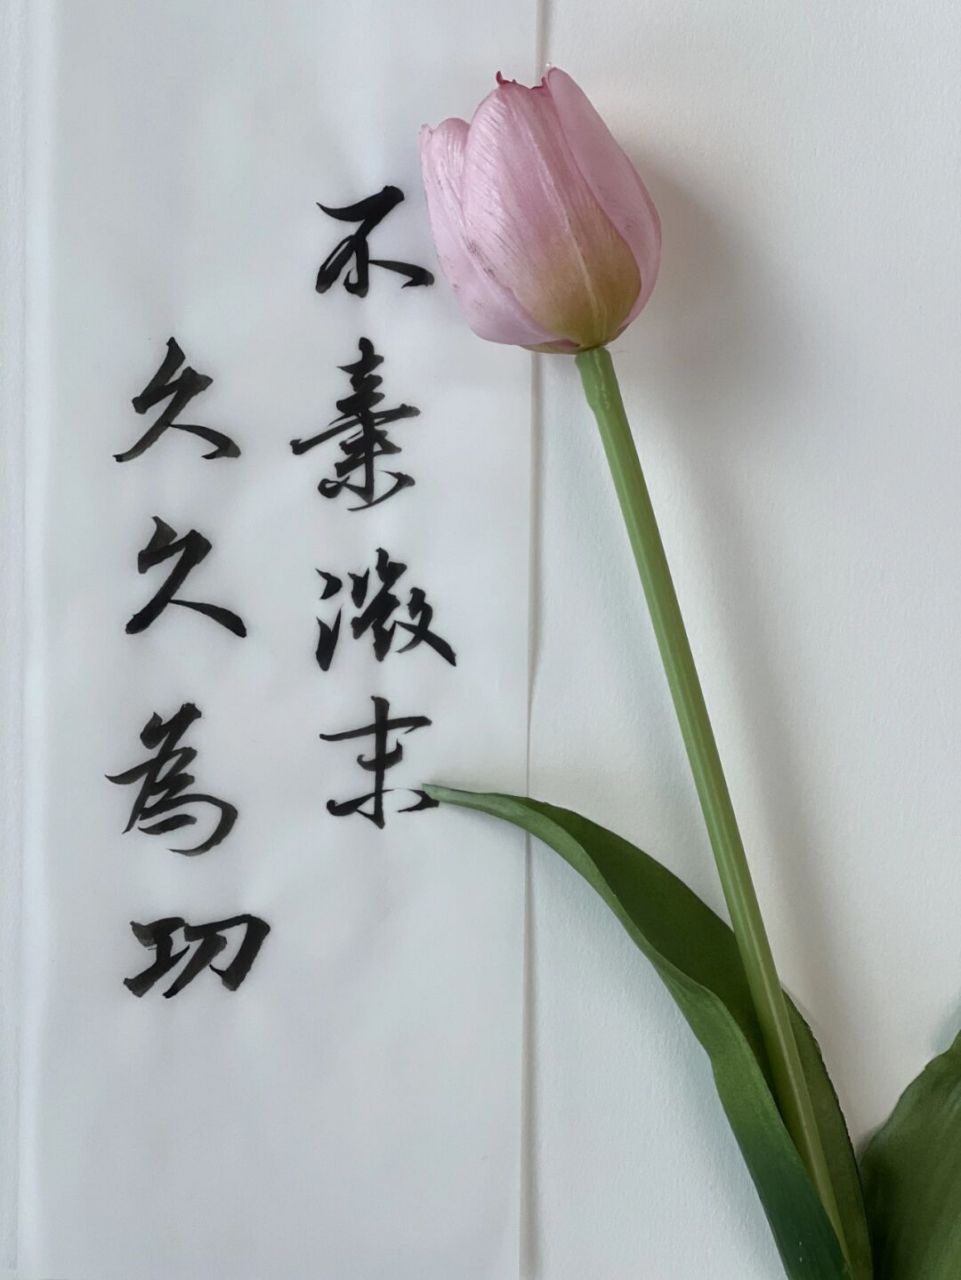 不棄微末
久久為功